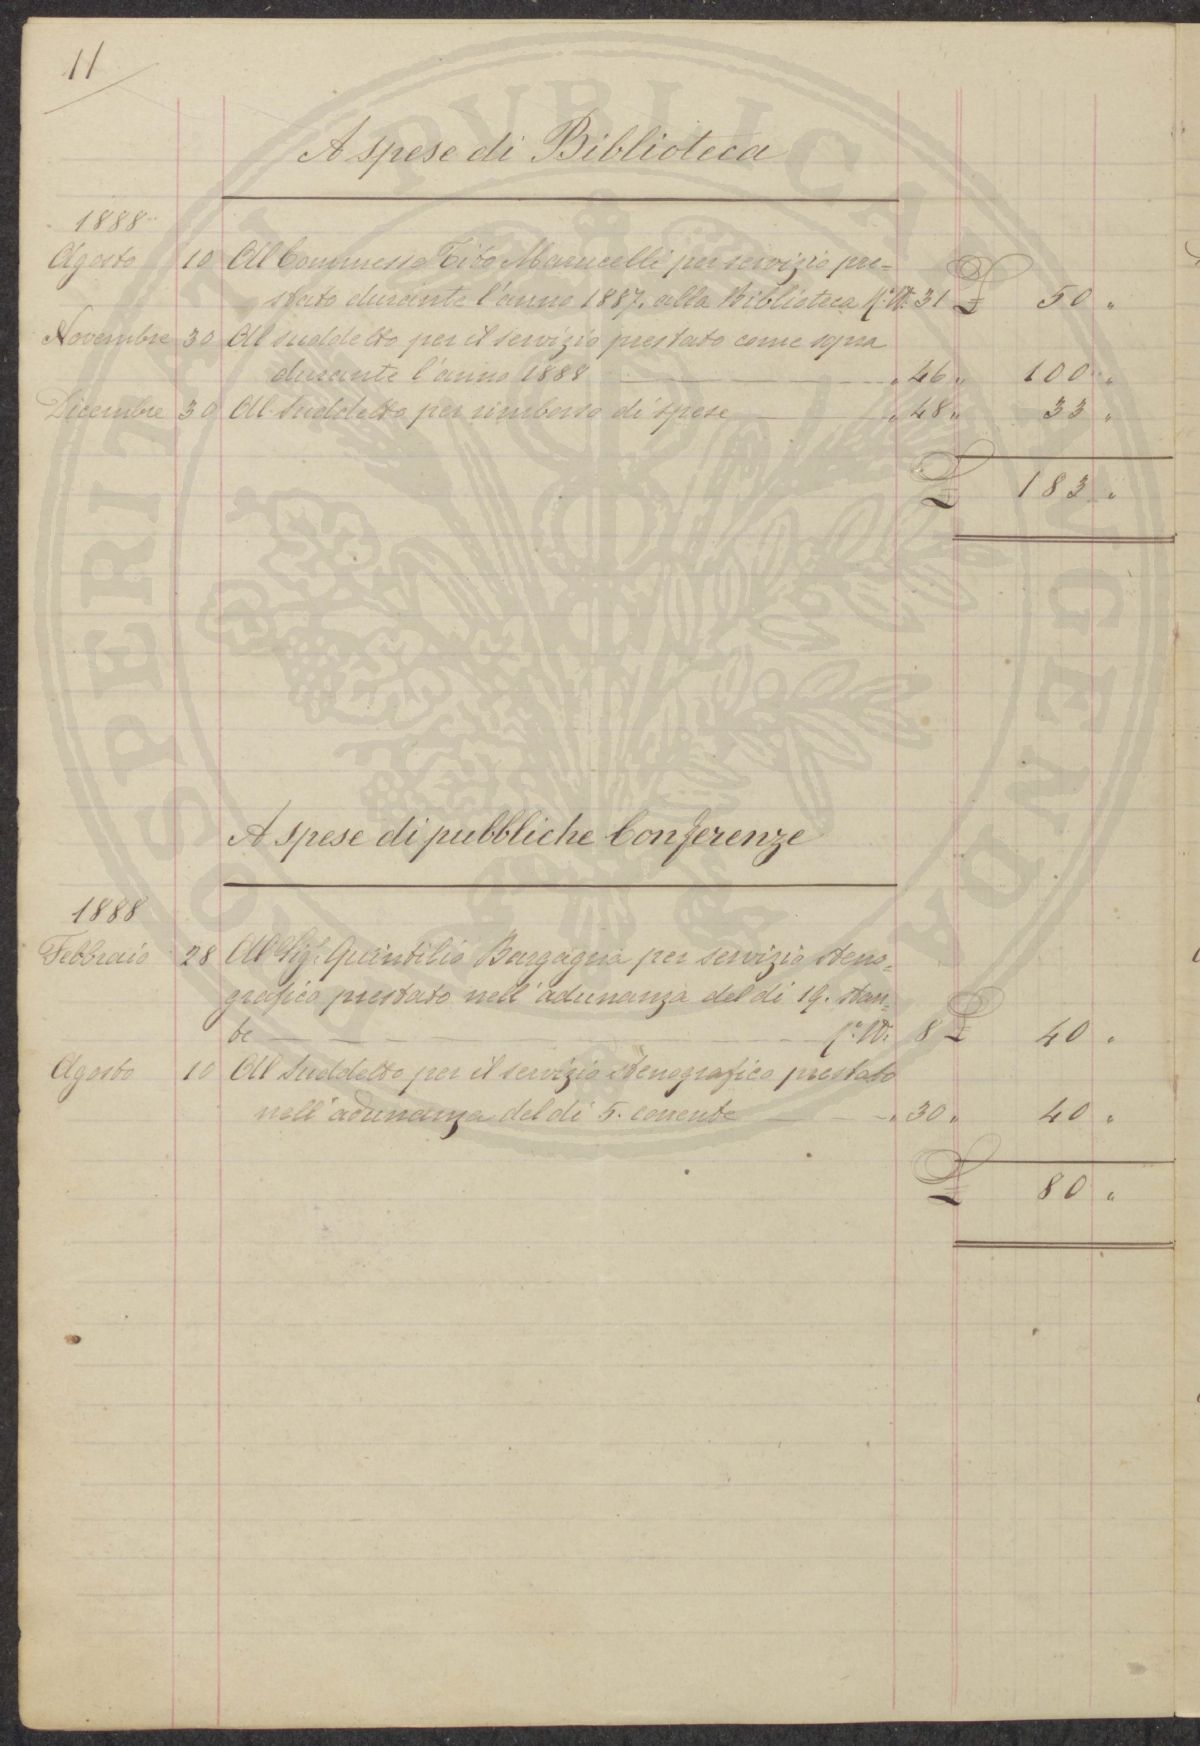 11
A spese di Biblioteca
1888
Agosto 10 Al Commesso Tito Marucelli per servizio pre=
stato durante l'anno 1887. alla Biblioteca N. 31 £ 50 "
Novembre 30 Al suddetto per il servizio prestato come sopra
durante l'anno 1888 " 46 " 100 "
Dicembre 30 Al Suddetto per rimborso di spese " 48 " 33 "
£ 183 "
A spese di pubbliche Conferenze
1888
Febbraio 28 Al Sig. Quintilio Bargagna per servizio steno=
grafico prestato nell'adunanza del di 19. stan=
te 8 £ 40 "
Agosto 10 Al Suddetto per il servizio stenografico prestato
nell'adunanza del di 5. corrente " 30 " 40 "
£ 80 "
PROSPERITATI PVBLICAE AVGENDAE